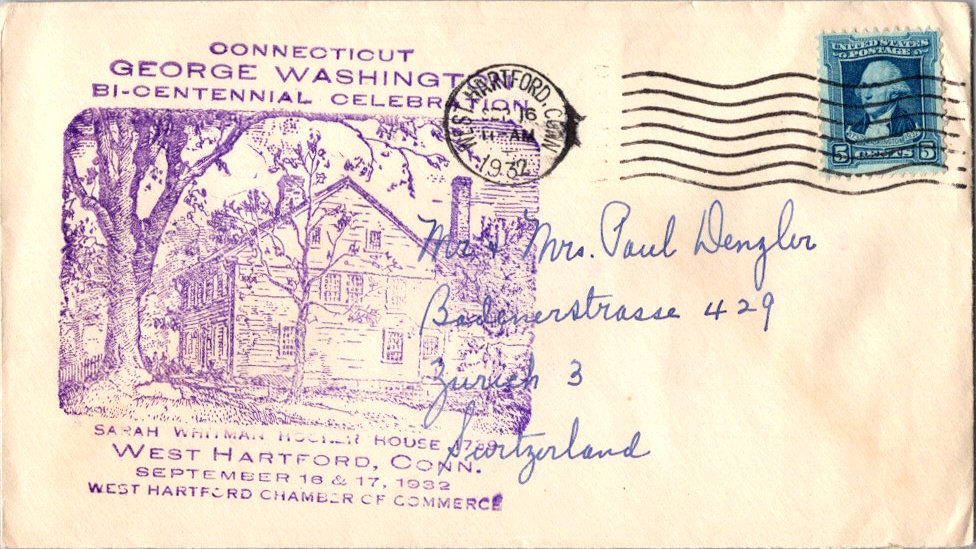 CONNECTICUT
GEORGE WASHINGTON
BI-CENTENNIAL CELEBRATION
WEST HARTFORD, CONN.
SEP 16
AM
1932
UNITED STATES
POSTAGE
5 CENTS 5
Mr. + Mrs. Paul Dengler
Badenerstrasse 429
Zurich 3
Switzerland
SARAH WHITMAN HOOKER HOUSE
WEST HARTFORD, CONN.
SEPTEMBER 16 & 17, 1932
WEST HARTFORD CHAMBER OF COMMERCE